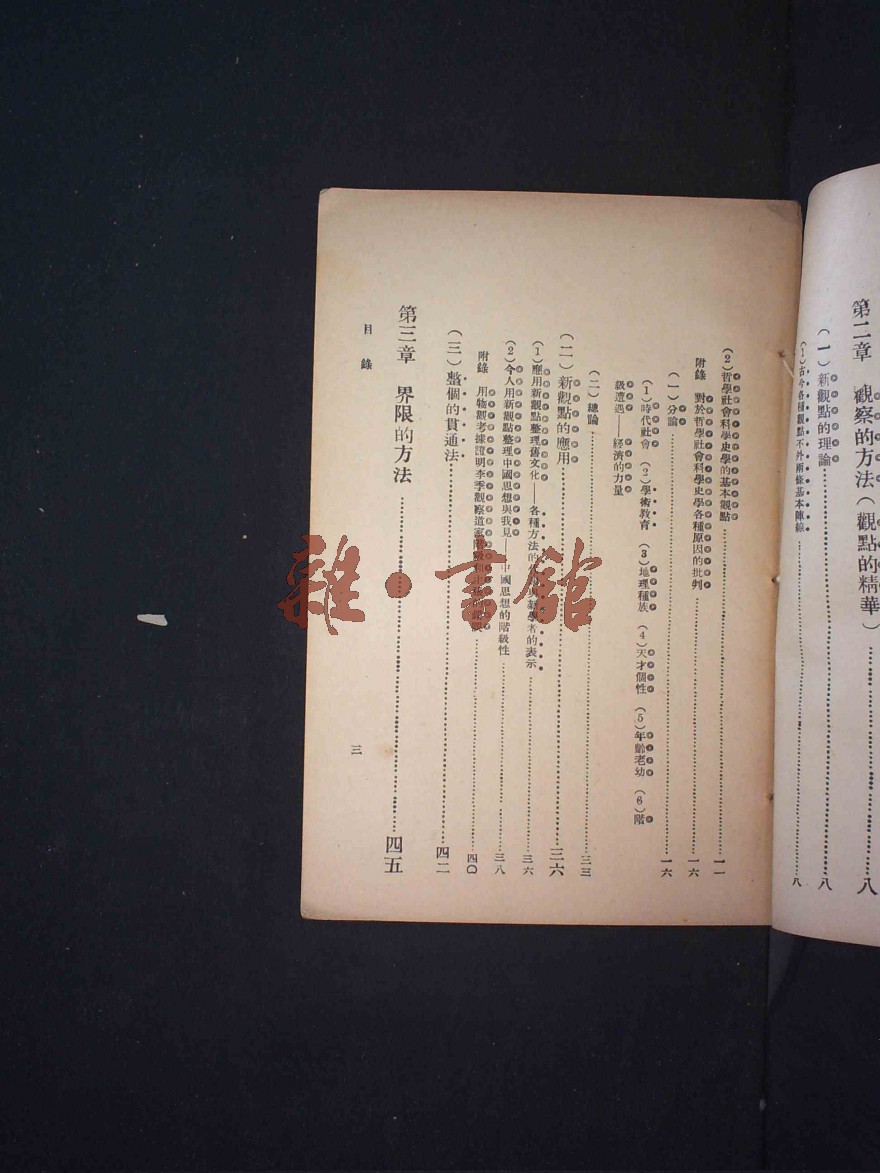 第二章　觀察的方法（觀點的精華）……八
（一）新觀點的理論……八
（1）古今各種觀點不外兩條基本陣線……八
（2）哲學社會科學史學的基本觀點……一一
附錄　對於哲學社會科學史學各種原因的批判……一六
（一）分論……一六
（1）時代社會　（2）學術教育　（3）地理種族　（4）天才個性　（5）年齡老幼　（6）階
級遭遇——經濟的力量
（二）總論……三三
（二）新觀點的應用……三六
（1）應用新觀點整理舊文化——各種方法的 學者的表示……三六
（2）今人用新觀點整理中國思想與我見——中國思想的階級性……三八
附錄　用物觀考據證明李季觀察道家階級……四〇
（三）整個的貫通法……四二
第三章　界限的方法……四五
目錄
三
雜·書館